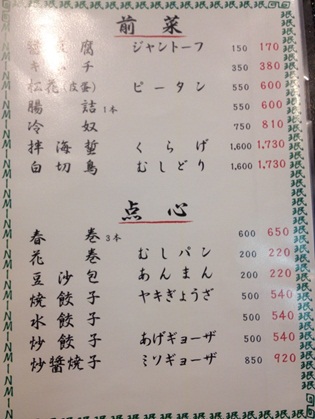 前菜
醤豆腐 ジャントーフ 150 170
キムチ 350 380
松花(皮蛋) ピータン 550 600
腸詰 1本 550 600
冷奴 750 810
拌海蜇 くらげ 1,600 1,730
白切鳥 むしどり 1,600 1,730
点心
春巻 3本 600 650
花巻 むしパン 200 220
豆沙包 あんまん 200 220
焼餃子 ヤキぎょうざ 500 540
水餃子 500 540
炒餃子 あげギョーザ 500 540
炒醤焼子 ミソギョーザ 850 920